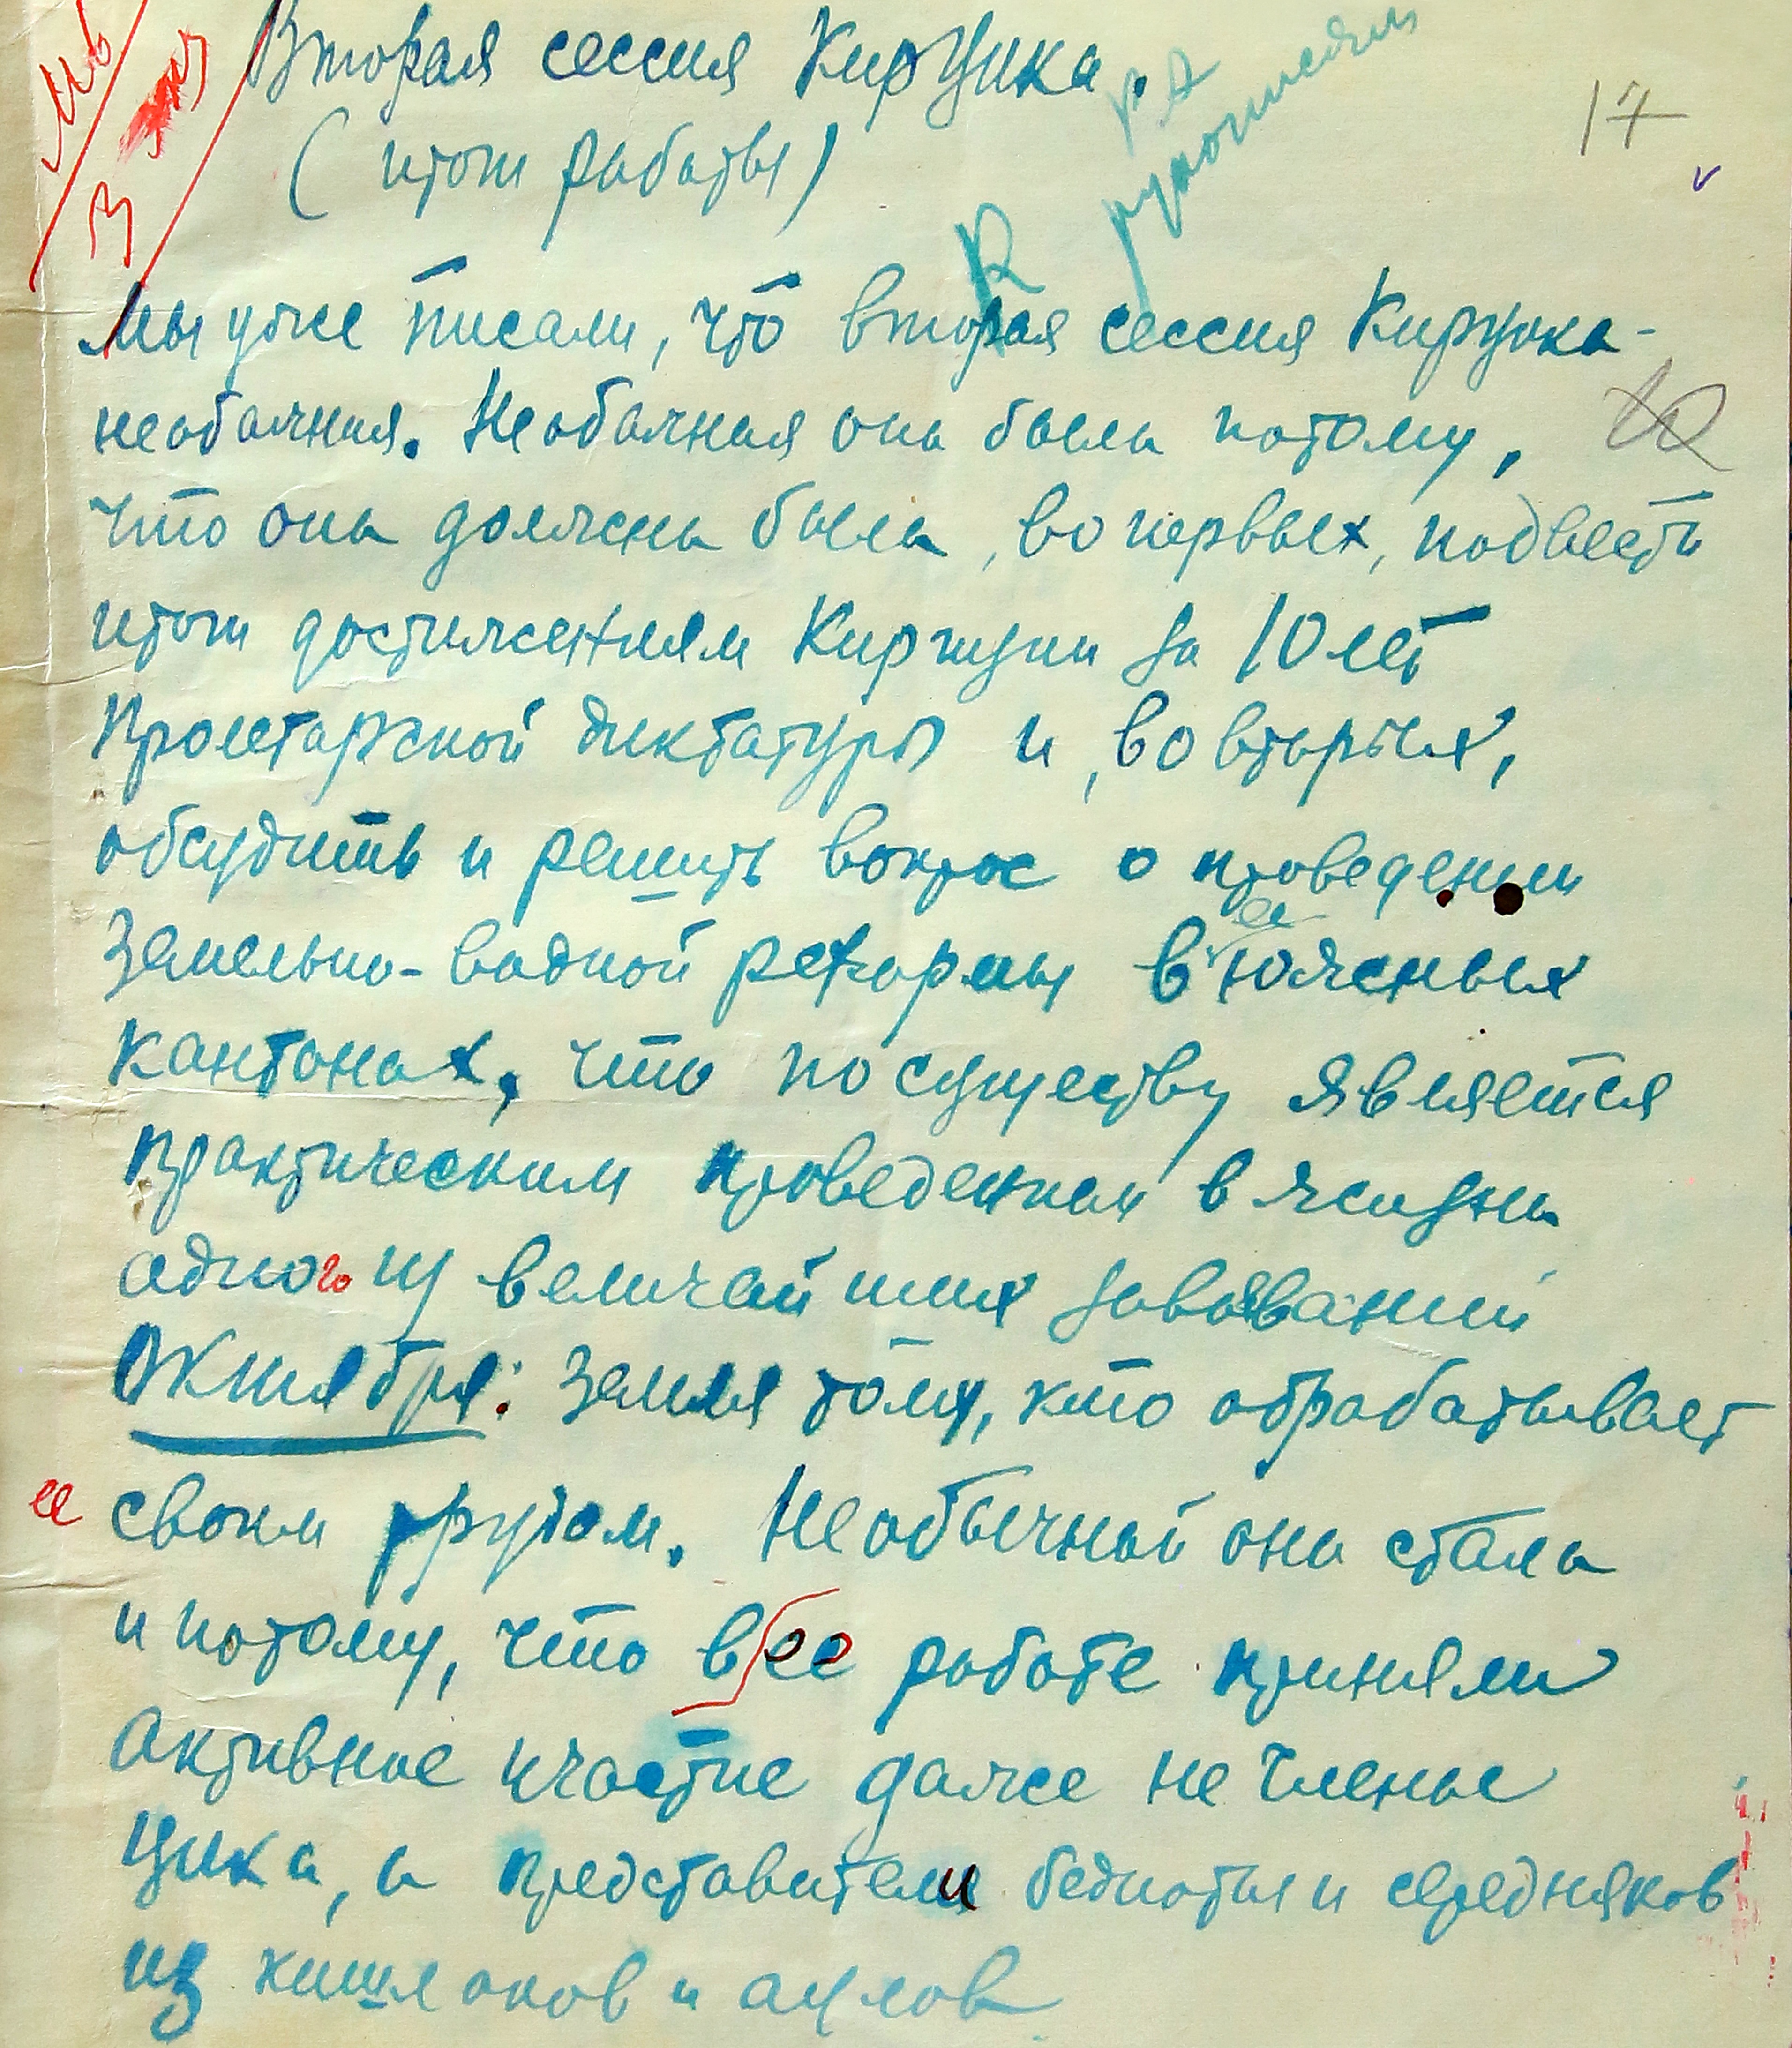 Вторая сессия КирЦика.
(итоги работы)
17
рукописям
Мы уже писали, что вторая сессия Кирцика -
необычная. Необычная она была потому,
что она должна была, во первых, подвести
итоги достижениям Киргизии за 10 лет
Пролетарской диктатуры и, во вторых,
обсудить и решить вопрос о проведении
Земельно-водной реформы в ее южных
кантонах, что по существу является
практическим проведением в жизнь
одного из величайших завоеваний
Октября: Земля тому, кто обрабатывает
ее своим трудом. Необычной она стала
и потому, что в ее работе приняли
активное участие даже не члены
Цика, а представители бедноты и середняков
из кишлаков и аулов